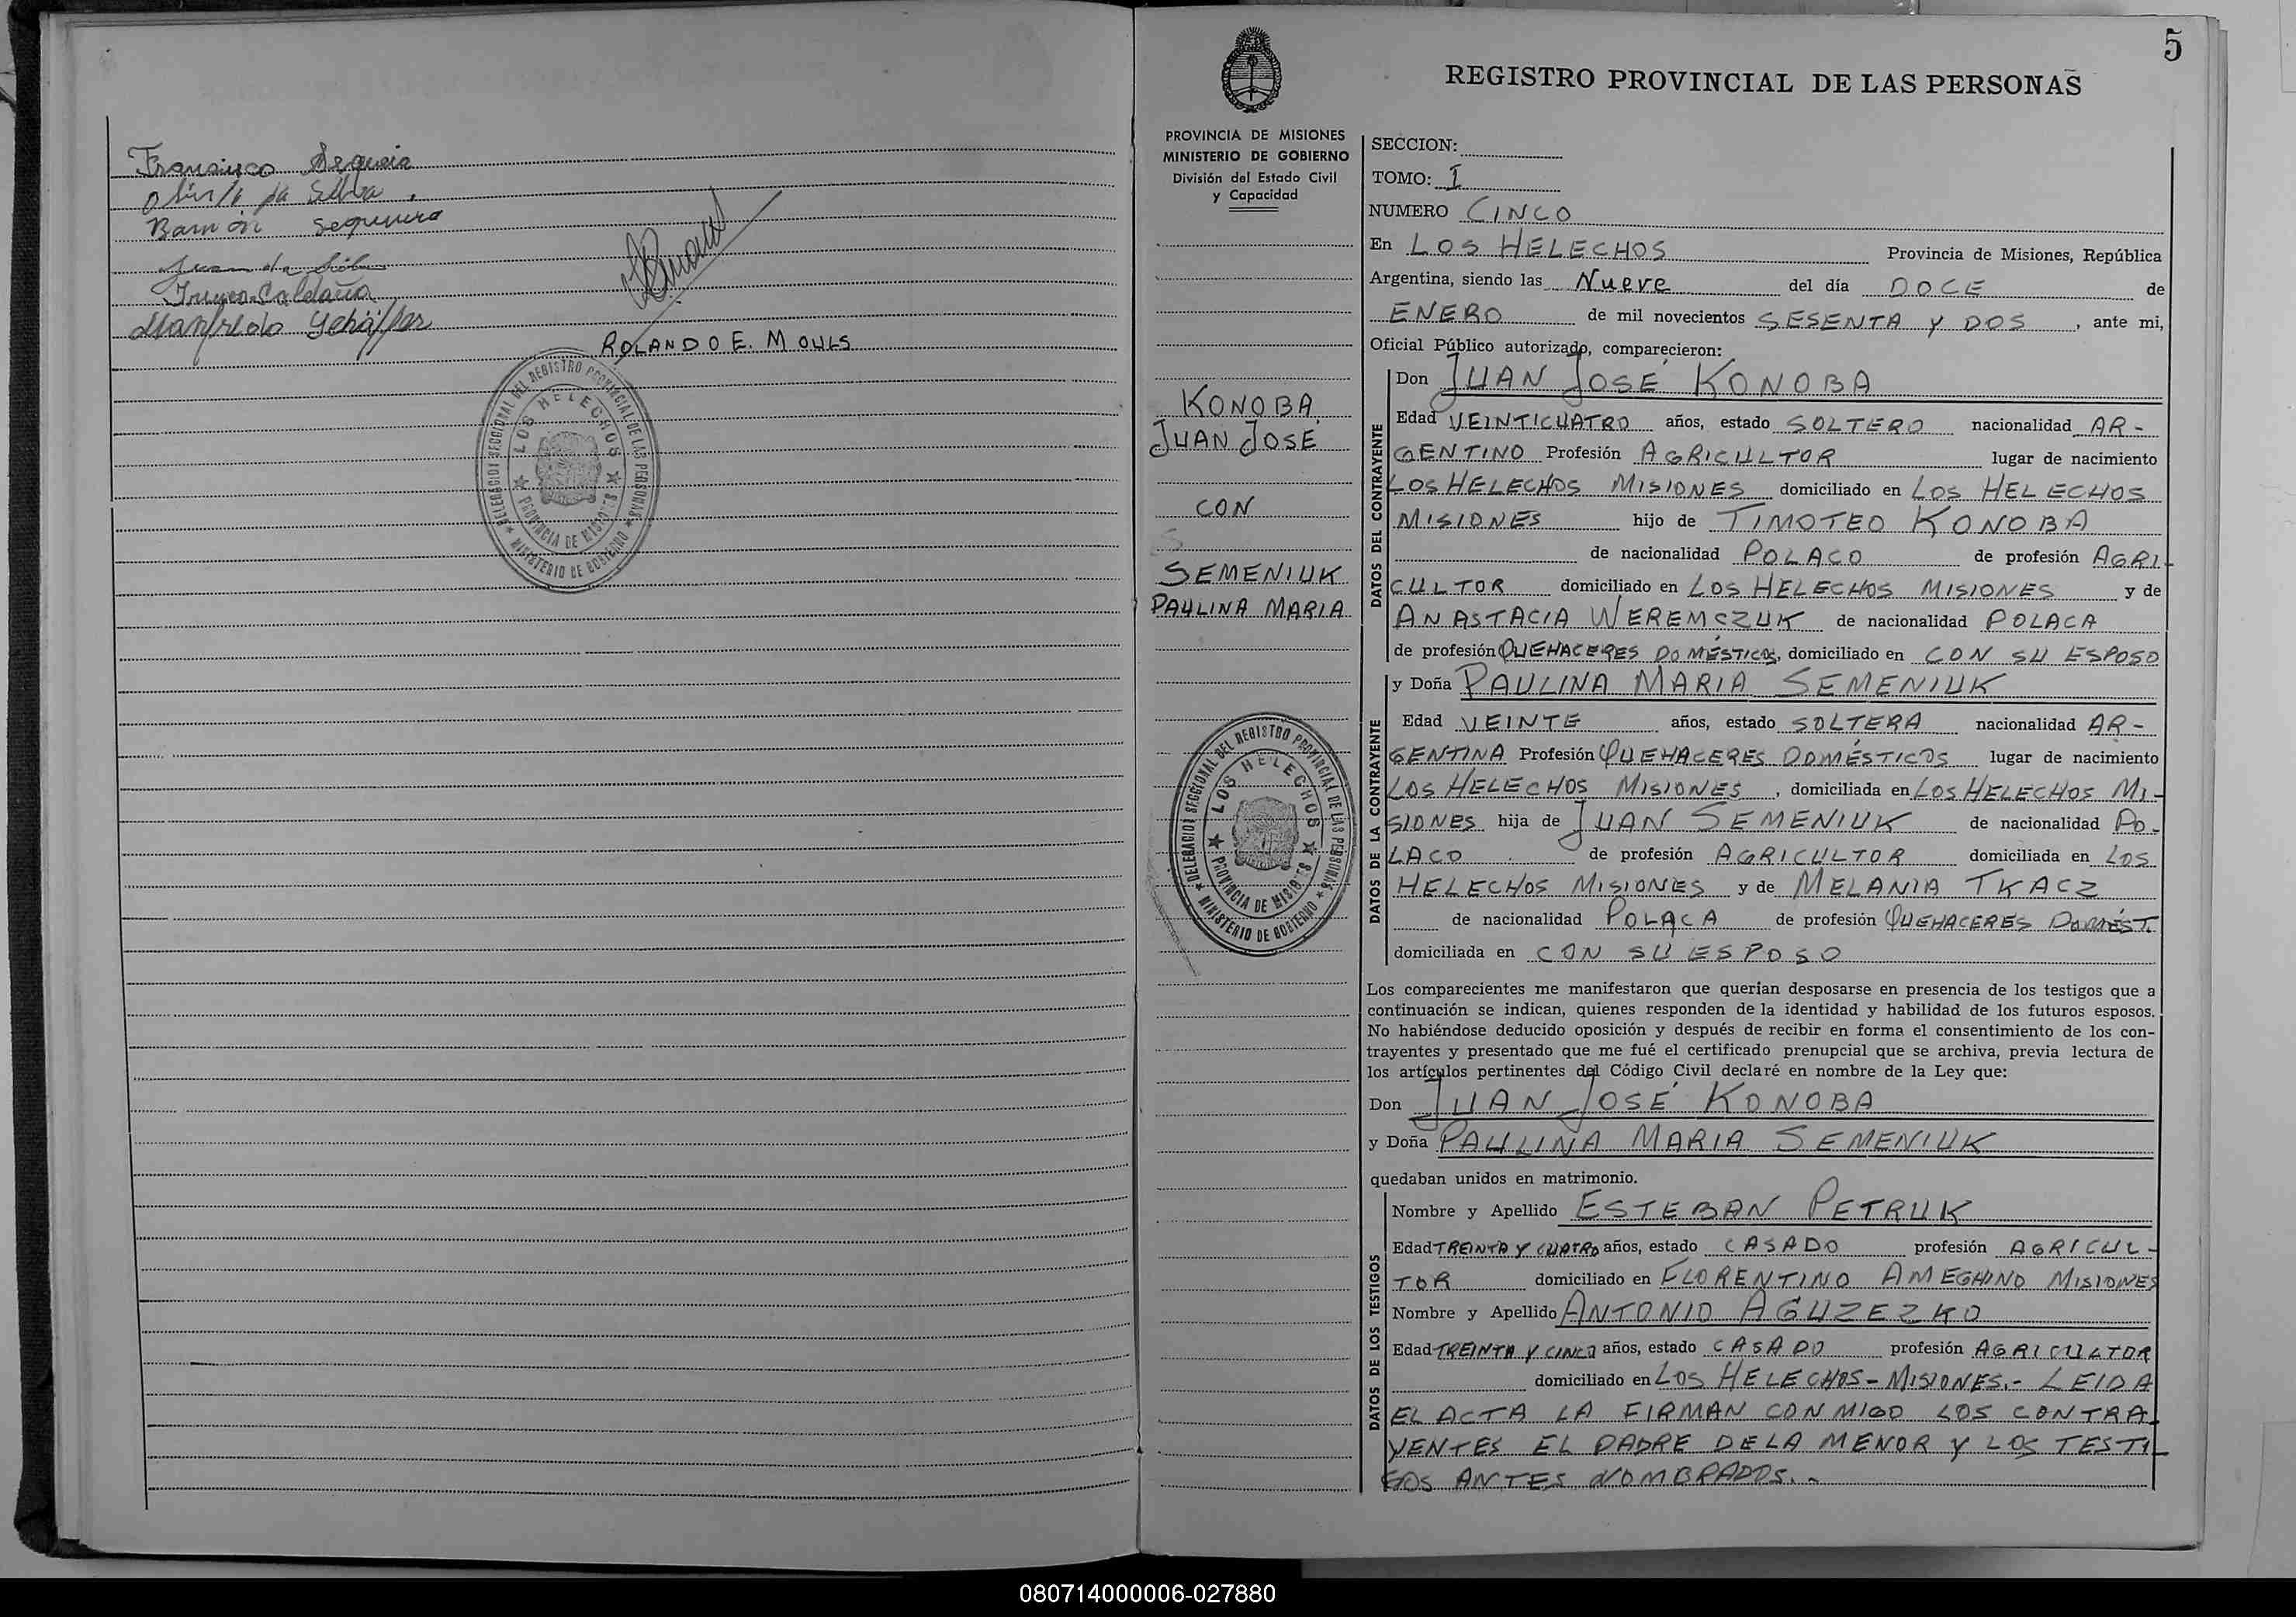 Francisco Sequeia
da Silva
Ramón Sequeira
Juan da Silva
Saldaña
Manfredo Schäffer
ROLANDO E. MOULS
DELEGACION SECCIONAL DEL REGISTRO PROVINCIAL DE LAS PERSONAS
LOS HELECHOS
PROVINCIA DE MISIONES
MINISTERIO DE GOBIERNO
5
REGISTRO PROVINCIAL DE LAS PERSONAS
PROVINCIA DE MISIONES
MINISTERIO DE GOBIERNO
División del Estado Civil
y Capacidad
KONOBA
JUAN JOSÉ
CON
SEMENIUK
PAULINA MARIA
DELEGACION SECCIONAL DEL REGISTRO PROVINCIAL DE LAS PERSONAS
LOS HELECHOS
PROVINCIA DE MISIONES
MINISTERIO DE GOBIERNO
SECCION:
TOMO: I
NUMERO CINCO
En LOS HELECHOS Provincia de Misiones, República
Argentina, siendo las Nueve del día DOCE de
ENERO de mil novecientos SESENTA Y DOS, ante mi,
Oficial Público autorizado, comparecieron:
DATOS DEL CONTRAYENTE
Don JUAN JOSÉ KONOBA
Edad VEINTICUATRO años, estado SOLTERO nacionalidad AR-
GENTINO Profesión AGRICULTOR lugar de nacimiento
LOS HELECHOS MISIONES domiciliado en LOS HELECHOS
MISIONES hijo de TIMOTEO KONOBA
de nacionalidad POLACO de profesión AGRI-
CULTOR domiciliado en LOS HELECHOS MISIONES y de
ANASTACIA WEREMCZUK de nacionalidad POLACA
de profesión QUEHACERES DOMÉSTICOS, domiciliado en CON SU ESPOSO
DATOS DE LA CONTRAYENTE
y Doña PAULINA MARIA SEMENIUK
Edad VEINTE años, estado SOLTERA nacionalidad AR-
GENTINA Profesión QUEHACERES DOMÉSTICOS lugar de nacimiento
LOS HELECHOS MISIONES, domiciliada en LOS HELECHOS MI-
SIONES hija de JUAN SEMENIUK de nacionalidad PO-
LACO de profesión AGRICULTOR domiciliada en LOS
HELECHOS MISIONES y de MELANIA TKACZ
de nacionalidad POLACA de profesión QUEHACERES DOMÉST.
domiciliada en CON SU ESPOSO
Los comparecientes me manifestaron que querían desposarse en presencia de los testigos que a
continuación se indican, quienes responden de la identidad y habilidad de los futuros esposos.
No habiéndose deducido oposición y después de recibir en forma el consentimiento de los con-
trayentes y presentado que me fué el certificado prenupcial que se archiva, previa lectura de
los artículos pertinentes del Código Civil declaré en nombre de la Ley que:
Don JUAN JOSÉ KONOBA
y Doña PAULINA MARIA SEMENIUK
quedaban unidos en matrimonio.
DATOS DE LOS TESTIGOS
Nombre y Apellido ESTEBAN PETRUK
Edad TREINTA Y CUATRO años, estado CASADO profesión AGRICUL-
TOR domiciliado en FLORENTINO AMEGHINO MISIONES
Nombre y Apellido ANTONIO AGUZEZKO
Edad TREINTA Y CINCO años, estado CASADO profesión AGRICULTOR
domiciliado en LOS HELECHOS-MISIONES.- LEIDA
EL ACTA LA FIRMAN CONMIGO LOS CONTRA-
YENTES EL PADRE DE LA MENOR Y LOS TESTI-
GOS ANTES NOMBRADOS.-
080714000006-027880